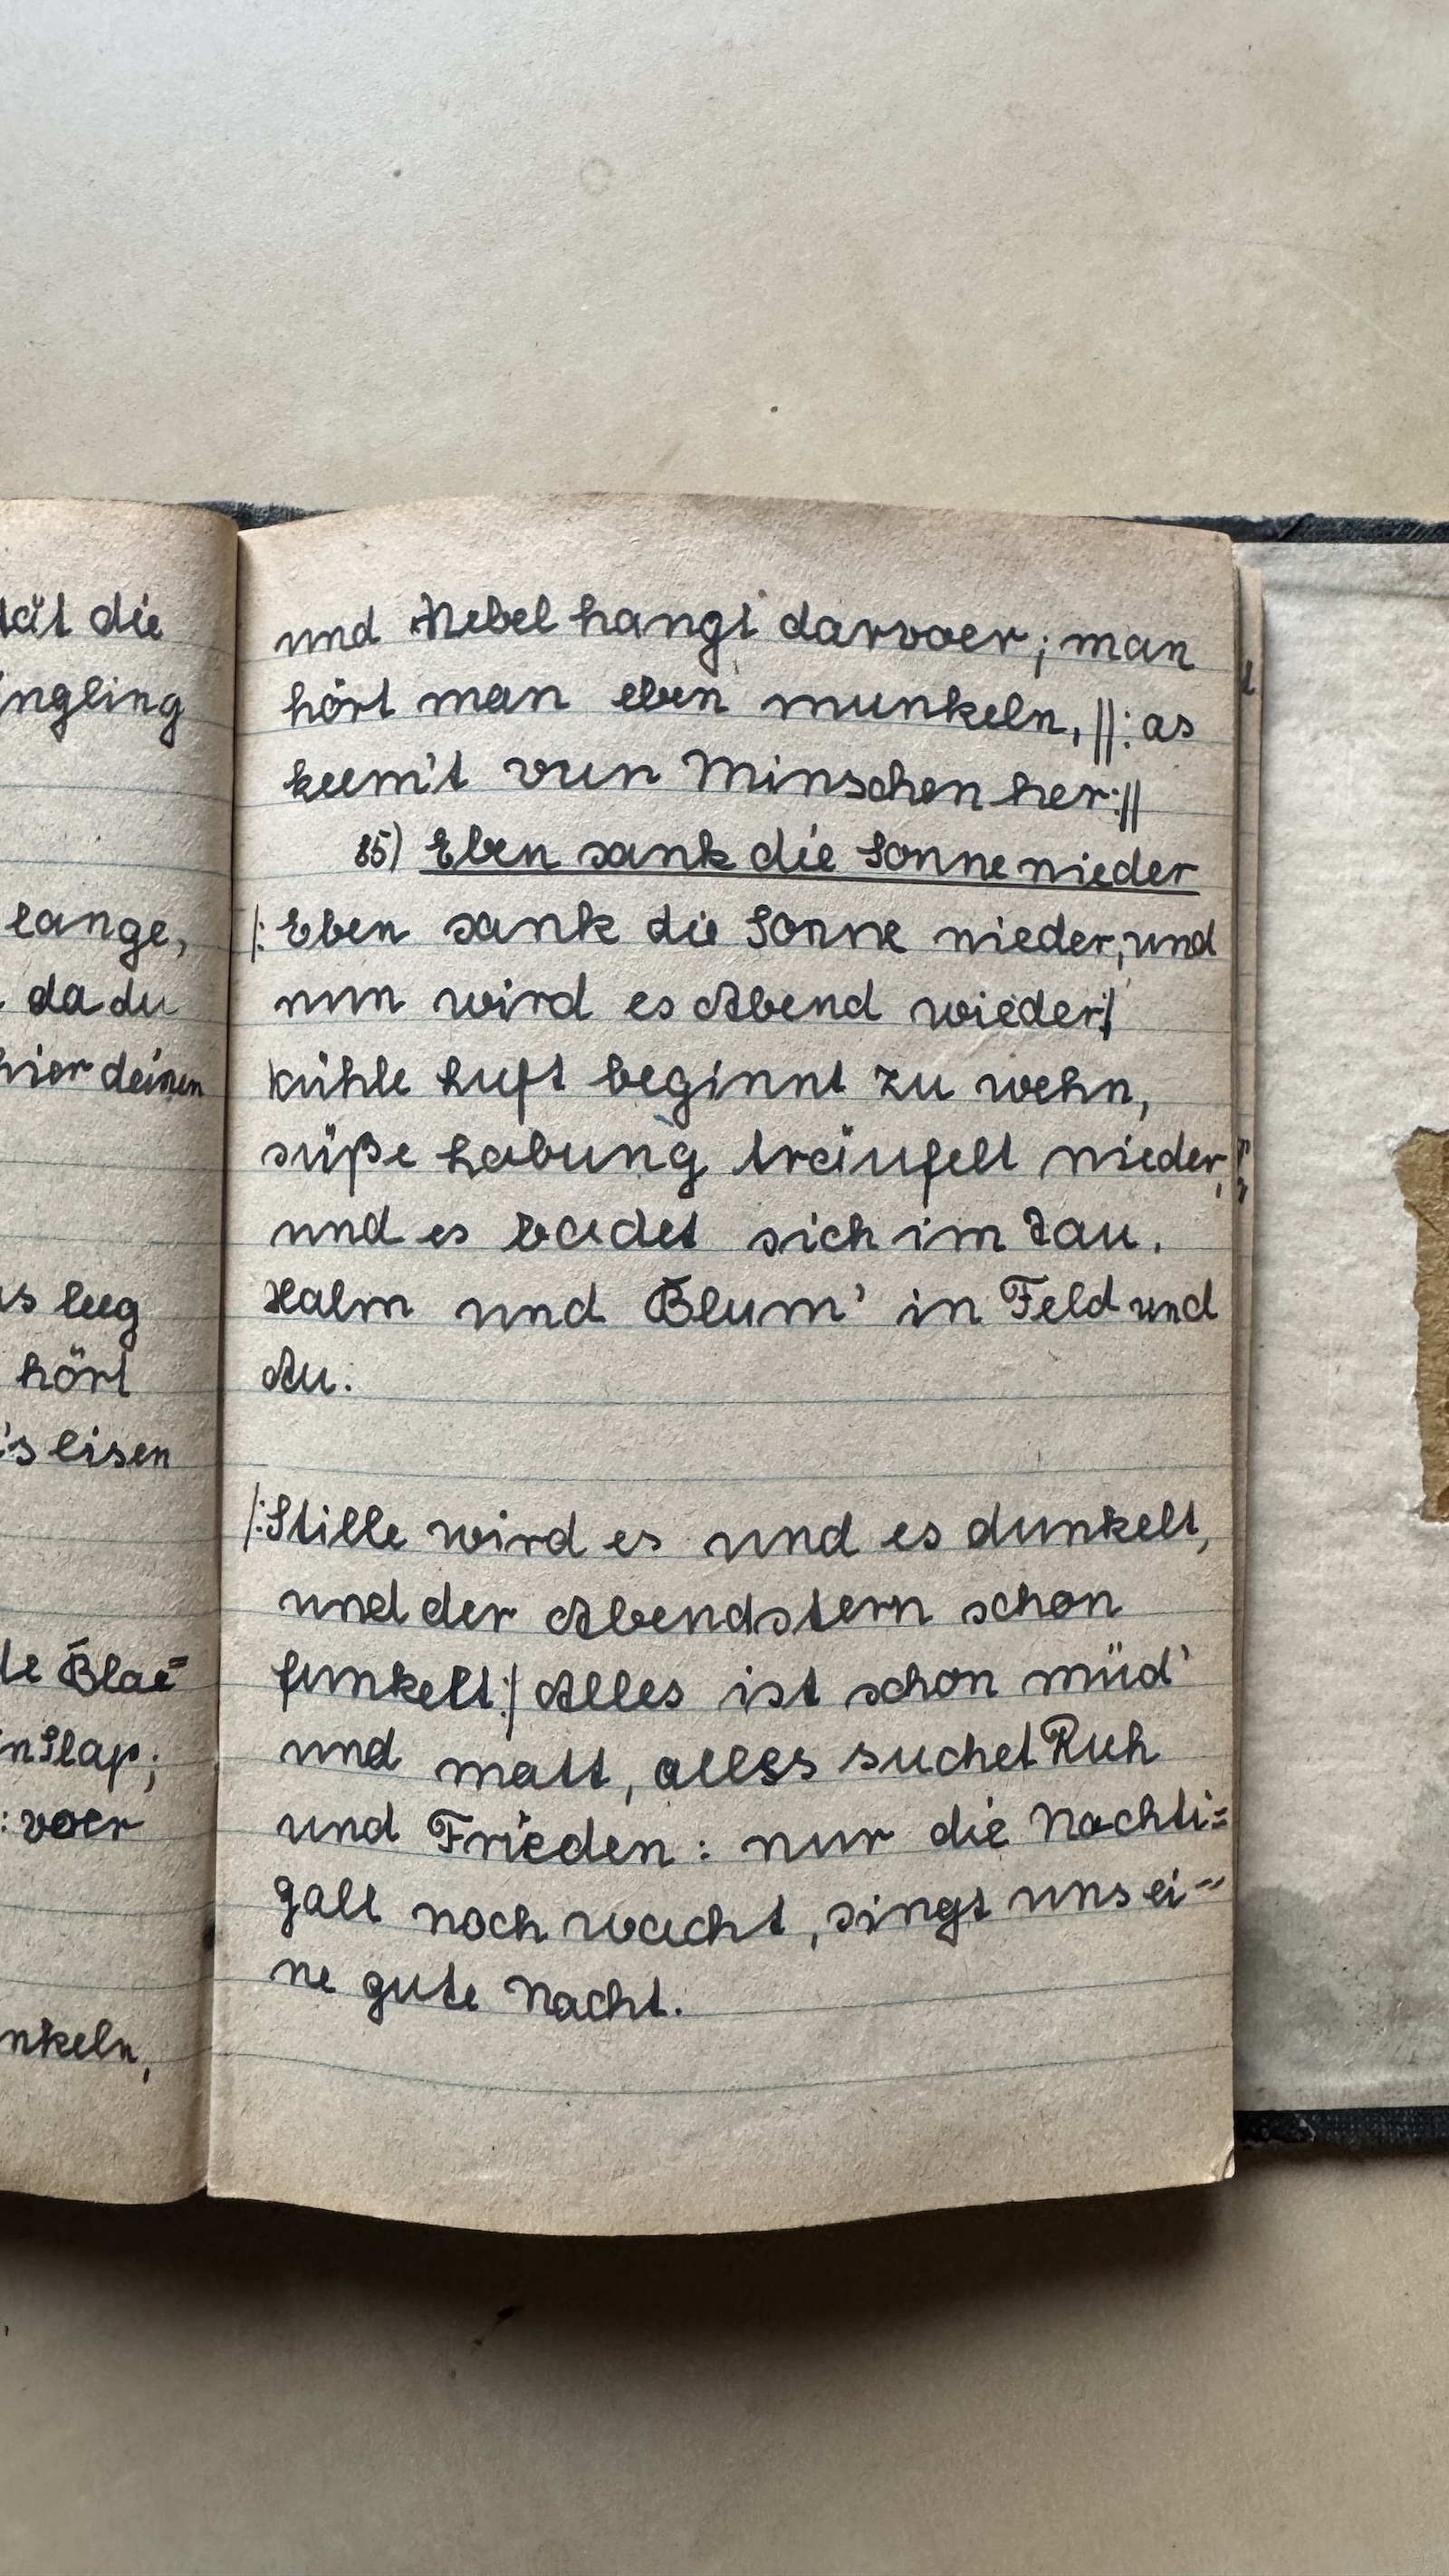 tät die
ngling
lange,
da du
hier deinen
s lueg
hört
's lisen
de Blae=
Slap;
: voer
nkeln,
und Nebel hangt darvoer; man
hört man eben munkeln, ||: as
keem't vun Minschen her:||
85) Eben sank die Sonne nieder
/: Eben sank die Sonne nieder, und
nun wird es Abend wieder:/
Kühle Luft beginnt zu wehn,
süße Labung träufelt nieder,
und es badet sich im Tau.
Halm und Blum' in Feld und
Au.
/: Stille wird es und es dunkelt,
und der Abendstern schon
funkelt:/ Alles ist schon müd'
und matt, alles suchet Ruh
und Frieden: nur die Nachti=
gall noch wacht, singt uns ei=
ne gute Nacht.